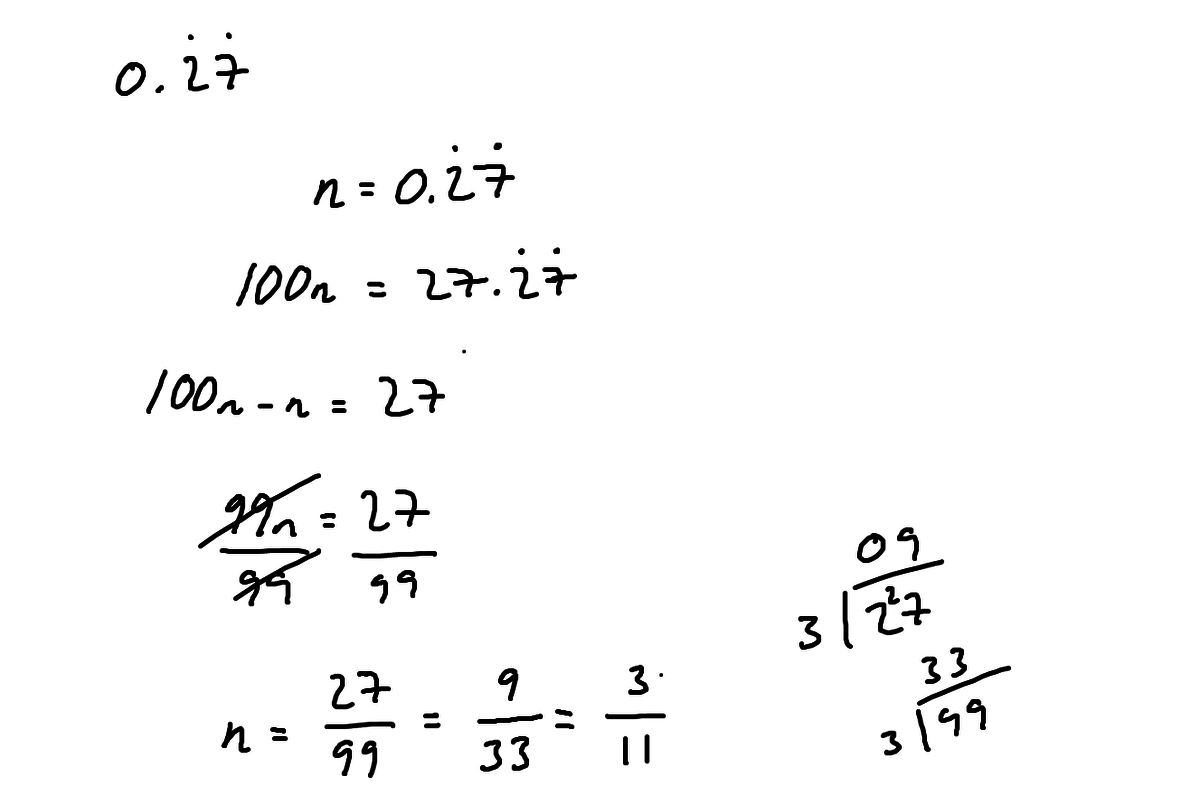 0.2̇7̇
n = 0.2̇7̇
100n = 27.2̇7̇
100n - n = 27
99n/99 = 27/99
n = 27/99 = 9/33 = 3/11
09
3 | 2²7
33
3 | 99